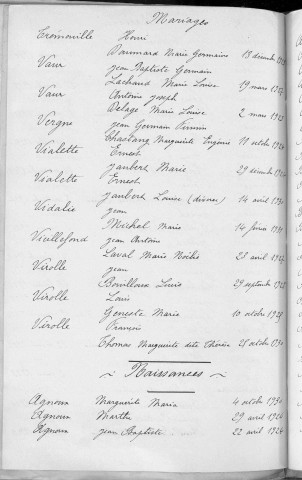 Mariages
Tremouille Henri
Daumard Marie Germaine 13 décembre
Vaur Jean Baptiste Germain
Lachaud Marie Louise 19 mars
Vaur Antoine Joseph
Delage Marie Louise 2 mars
Vergne Jean Germain Firmin
Chastang Marguerite Eugénie 11 octobre
Vialette Ernest
Jaubert Marie 29 décembre
Vialette Ernest
Jaubert Louise (divorce) 14 avril
Vidalie Jean
Michel Marie 14 février
Vieillefond Jean Antoine
Laval Marie Noélie 28 avril
Virolle Jean
Bouilloux Louise 29 septembre
Virolle Louis
Geneste Maria 10 octobre
Virolle François
Thomas Marguerite dite Thérèse 25 octobre
~ Naissances ~
Agnoux Marguerite Maria 4 octobre 1930
Agnoux Marthe 29 avril
Agnoux Jean Baptiste 22 avril 1924